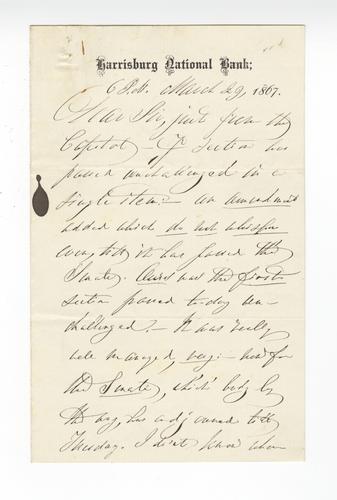 Harrisburg National Bank;
6 P.M. March 29, 1867.
Dear Sir, just from the
Capitol — Yr section has
passed unchallenged in a
single item: — an amendment
added which do not whisper
even, till it has passed the
Senate. Ours was the first
section passed to-day un-
challenged? — It was really
well managed, very: — now for
the Senate, which body by
the way, has adjourned till
Tuesday. I don't know when